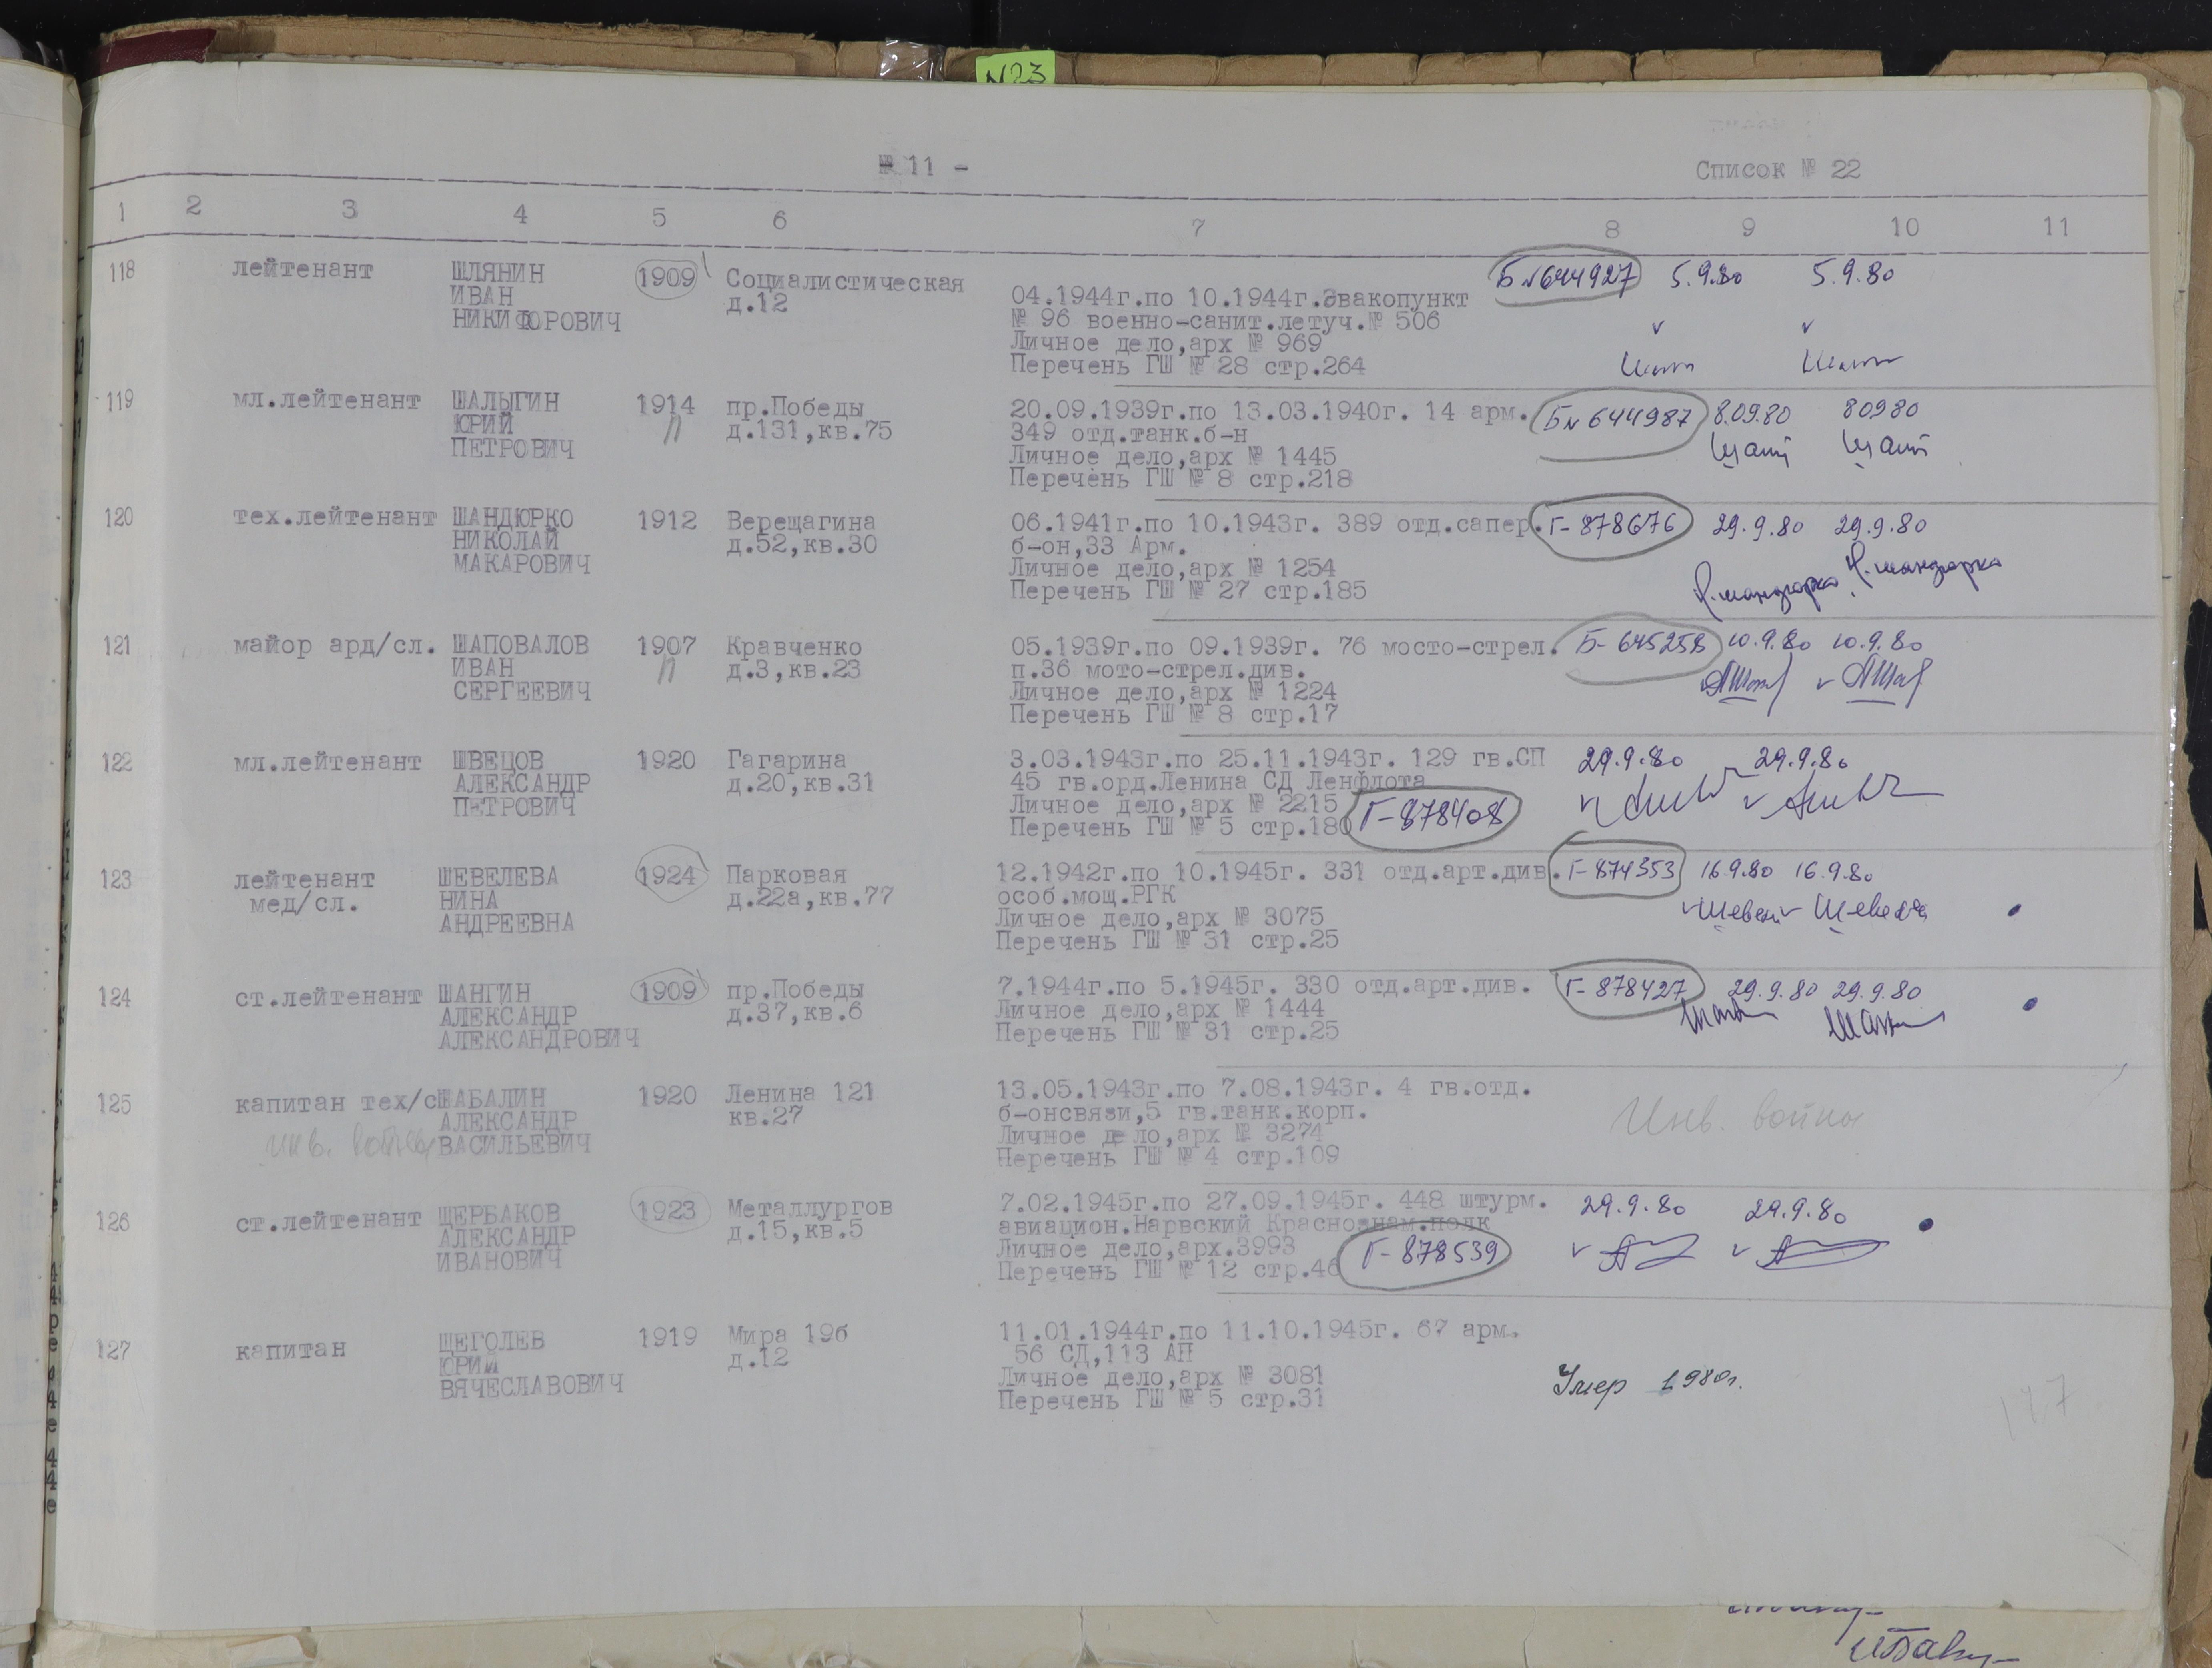 N23
№ 11 -
Список № 22
1 2 3 4 5 6 7 8 9 10 11
118 лейтенант ШЛЯНИН 1909 Социалистическая Б №644927 5.9.80 5.9.80
ИВАН д.12 04.1944г.по 10.1944г.Эвакопункт
НИКИФОРОВИЧ № 96 военно-санит.летуч.№ 506
Личное дело,арх № 969
Перечень ГШ № 28 стр.264
119 мл.лейтенант ШАЛЫГИН 1914 пр.Победы 20.09.1939г.по 13.03.1940г. 14 арм. Б№ 644987 8.09.80 80980
ЮРИЙ П д.131,кв.75 349 отд.танк.б-н
ПЕТРОВИЧ Личное дело,арх № 1445
Перечень ГШ № 8 стр.218
120 тех.лейтенант ШАНДЮРКО 1912 Верещагина 06.1941г.по 10.1943г. 389 отд.сапер. Г-878676 29.9.80 29.9.80
НИКОЛАЙ д.52,кв.30 б-он,33 Арм.
МАКАРОВИЧ Личное дело,арх № 1254
Перечень ГШ № 27 стр.185
121 майор ард/сл. ШАПОВАЛОВ 1907 Кравченко 05.1939г.по 09.1939г. 76 мосто-стрел. Б- 645258 10.9.80 10.9.80
ИВАН П д.3,кв.23 п.36 мото-стрел.див.
СЕРГЕЕВИЧ Личное дело,арх № 1224
Перечень ГШ № 8 стр.17
122 мл.лейтенант ШВЕЦОВ 1920 Гагарина 3.03.1943г.по 25.11.1943г. 129 гв.СП 29.9.80 29.9.80
АЛЕКСАНДР д.20,кв.31 45 гв.орд.Ленина СД Ленфлота
ПЕТРОВИЧ Личное дело,арх № 2215
Перечень ГШ № 5 стр.180 Г-878408
123 лейтенант ШЕВЕЛЕВА 1924 Парковая 12.1942г.по 10.1945г. 331 отд.арт.див. Г-874353 16.9.80 16.9.80
мед/сл. НИНА д.22а,кв.77 особ.мощ.РГК
АНДРЕЕВНА Личное дело,арх № 3075
Перечень ГШ № 31 стр.25
124 ст.лейтенант ШАНГИН 1909 пр.Победы 7.1944г.по 5.1945г. 330 отд.арт.див. Г- 878427 29.9.80 29.9.80
АЛЕКСАНДР д.37,кв.6 Личное дело,арх № 1444
АЛЕКСАНДРОВИЧ Перечень ГШ № 31 стр.25
125 капитан тех/сШАБАЛИН 1920 Ленина 121 13.05.1943г.по 7.08.1943г. 4 гв.отд.
АЛЕКСАНДР кв.27 б-онсвязи,5 гв.танк.корп. Инв. войны
инв. войны ВАСИЛЬЕВИЧ Личное дело,арх № 3274
Перечень ГШ № 4 стр.109
126 ст.лейтенант ЩЕРБАКОВ 1923 Металлургов 7.02.1945г.по 27.09.1945г. 448 штурм. 29.9.80 29.9.80
АЛЕКСАНДР д.15,кв.5 авиацион.Нарвский Краснознам.полк
ИВАНОВИЧ Личное дело,арх.3993 Г-878539
Перечень ГШ № 12 стр.46
127 капитан ЩЕГОЛЕВ 1919 Мира 19б 11.01.1944г.по 11.10.1945г. 67 арм.
ЮРИЙ д.12 56 СД,113 АП
ВЯЧЕСЛАВОВИЧ Личное дело,арх № 3081 Умер 1980г.
Перечень ГШ № 5 стр.31